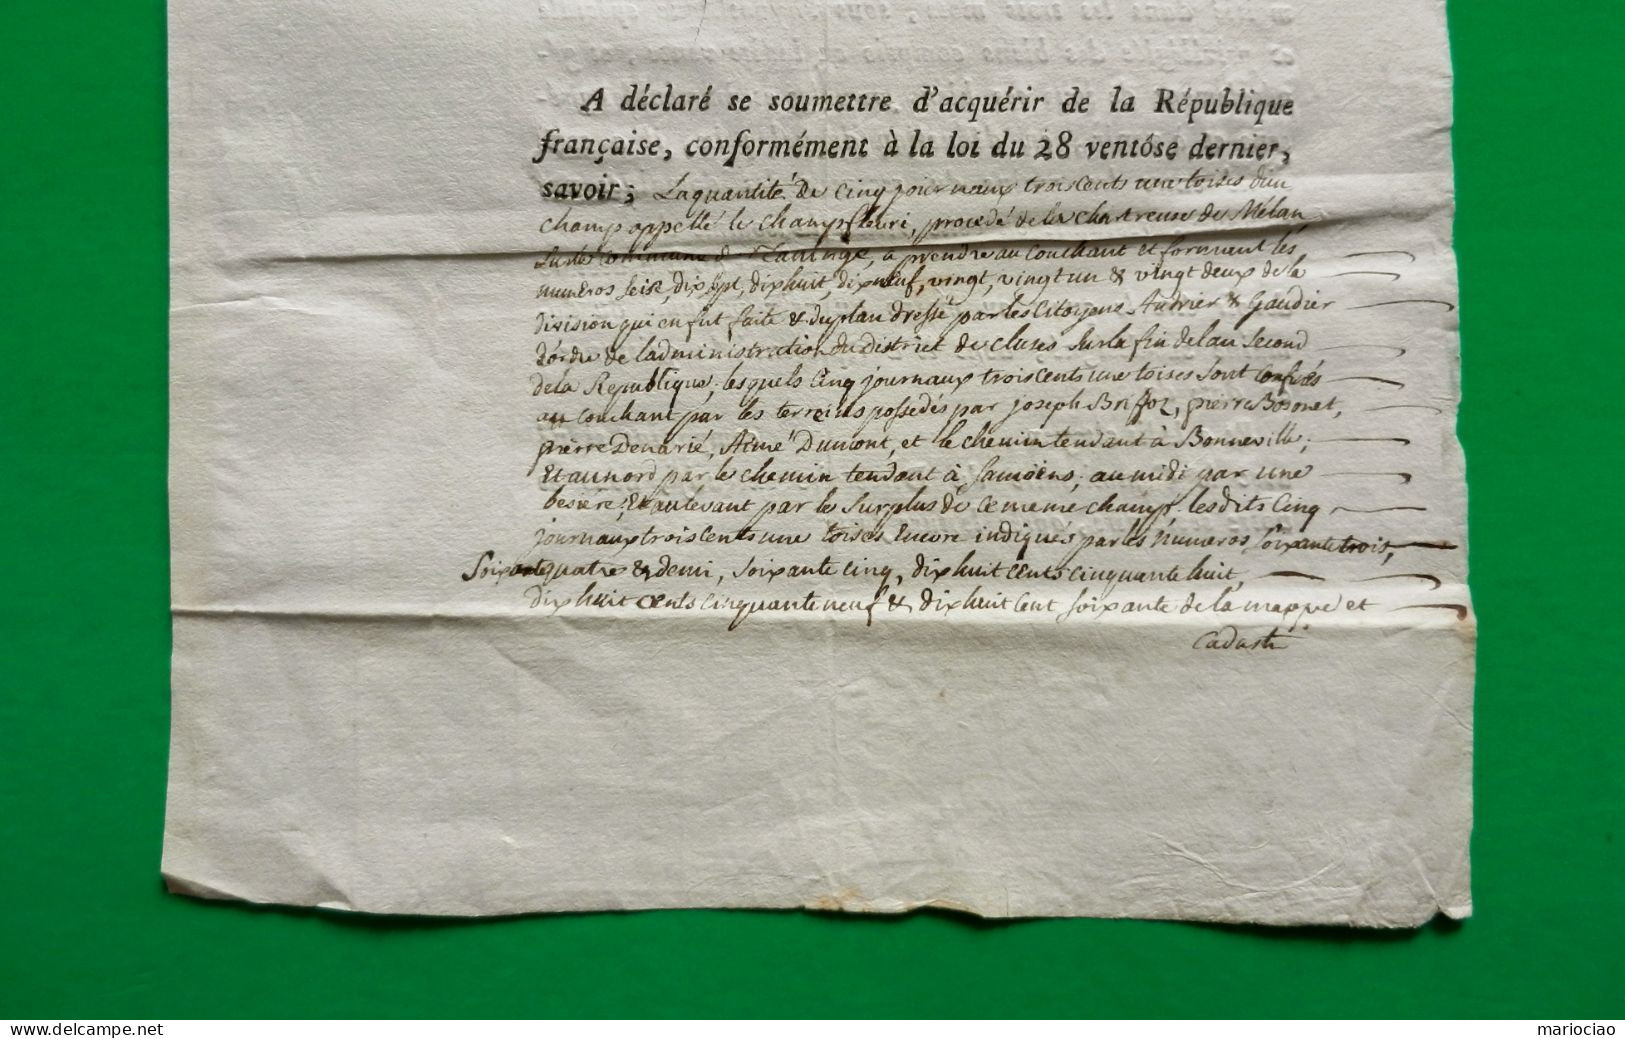 A déclaré se soumettre d'acquérir de la République
française, conformément à la loi du 28 ventôse dernier,
savoir; La quantité de Cinq journaux trois cents une toises d'un
champ appellé le Champfleuri, procedé de la chartreuse de Mélan
sur la commune de Taninge, à prendre au couchant et formant les
numeros seise, dix sept, dix huit, dix neuf, vingt, vingt un & vingt deux de la
division qui en fut faite & du plan dressé par les Citoyens & Gaudier
d'ordre de l'administration du district de Cluses sur la fin de l'an second
de la Republique; lesquels Cinq journaux trois cents une toises sont confinés
au couchant par les terreins possedés par joseph Briffoz, pierre Bosonet,
pierre Denarié, Aimé Dumont, et le chemin tendant à Bonneville;
Et au nord par le chemin tendant à Samoëns; au midi par une
besiere; Et au levant par le surplus de ce meme champ. les dits Cinq
journaux trois cents une toises Encore indiqués par les numeros soixante trois,
Soixante quatre & demi, soixante cinq, dix huit cents cinquante huit,
dix huit cents cinquante neuf & dix huit cent soixante de la mappe et
Cadastre
mariociao